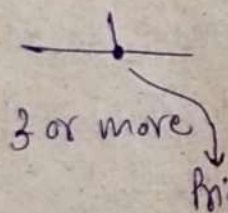 3 or more